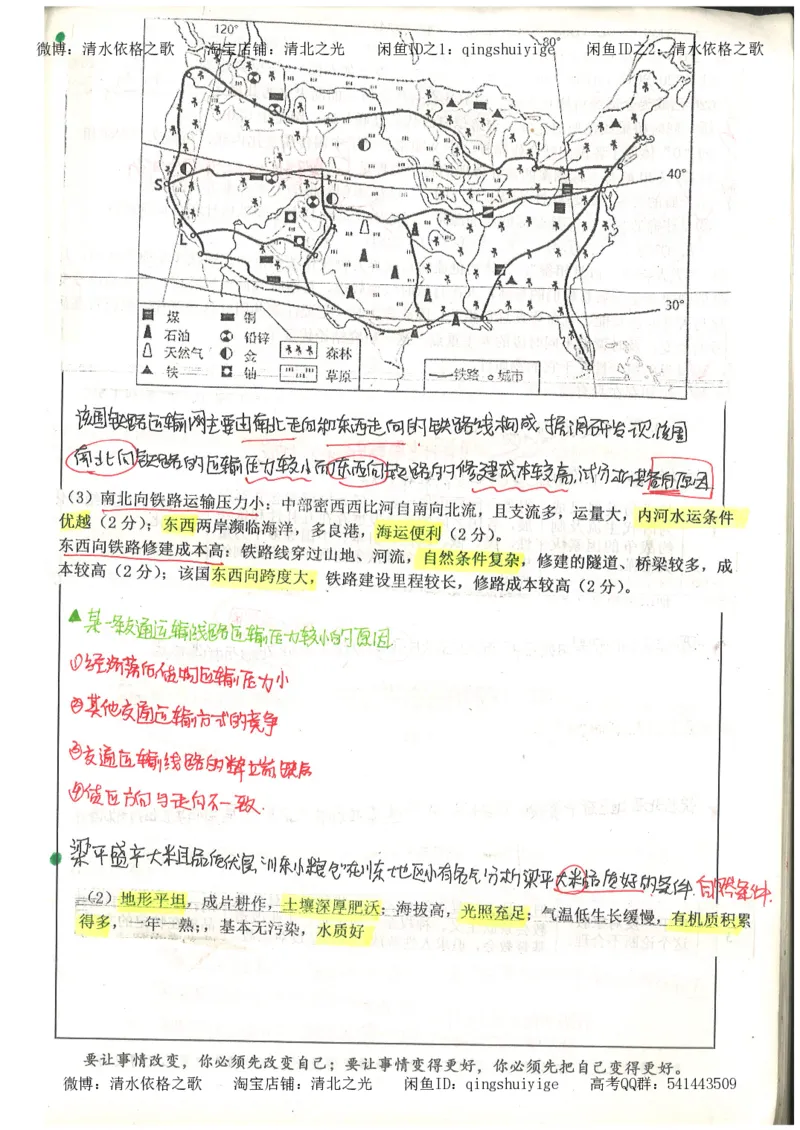 120° 80°
微博：清水依格之歌 淘宝店铺：清北之光 闲鱼ID之1：qingshuiyige 闲鱼ID之2：清水依格之歌
40°
S
L
30°
煤 铜
石油 铅锌
天然气 金 森林
铁 铀 草原
铁路 城市
该国铁路运输网主要由南北走向和东西走向的铁路线构成，据调研发现，该国
南北向铁路的运输压力较小而东西向铁路的修建成本较高，试分析其各自原因
（3）南北向铁路运输压力小：中部密西西比河自南向北流，且支流多，运量大，内河水运条件
优越（2分）；东西两岸濒临海洋，多良港，海运便利（2分）。
东西向铁路修建成本高：铁路线穿过山地、河流，自然条件复杂，修建的隧道、桥梁较多，成
本较高（2分）；该国东西向跨度大，铁路建设里程较长，修路成本较高（2分）。
某一条交通运输线路运输压力较小的原因
①经济落后货物运输压力小
②其他交通运输方式的竞争
③交通运输线路的
④货运方向与走向不一致．
梁平盛产大米且品质优良，川东小粮仓在川东地区小有名气分析梁平大米品质好的条件．自然条件．
（2）地形平坦，成片耕作，土壤深厚肥沃；海拔高，光照充足；气温低生长缓慢，有机质积累
得多，一年一熟；，基本无污染，水质好
要让事情改变，你必须先改变自己；要让事情变得更好，你必须先把自己变得更好。
微博：清水依格之歌 淘宝店铺：清北之光 闲鱼ID：qingshuiyige 高考QQ群：541443509